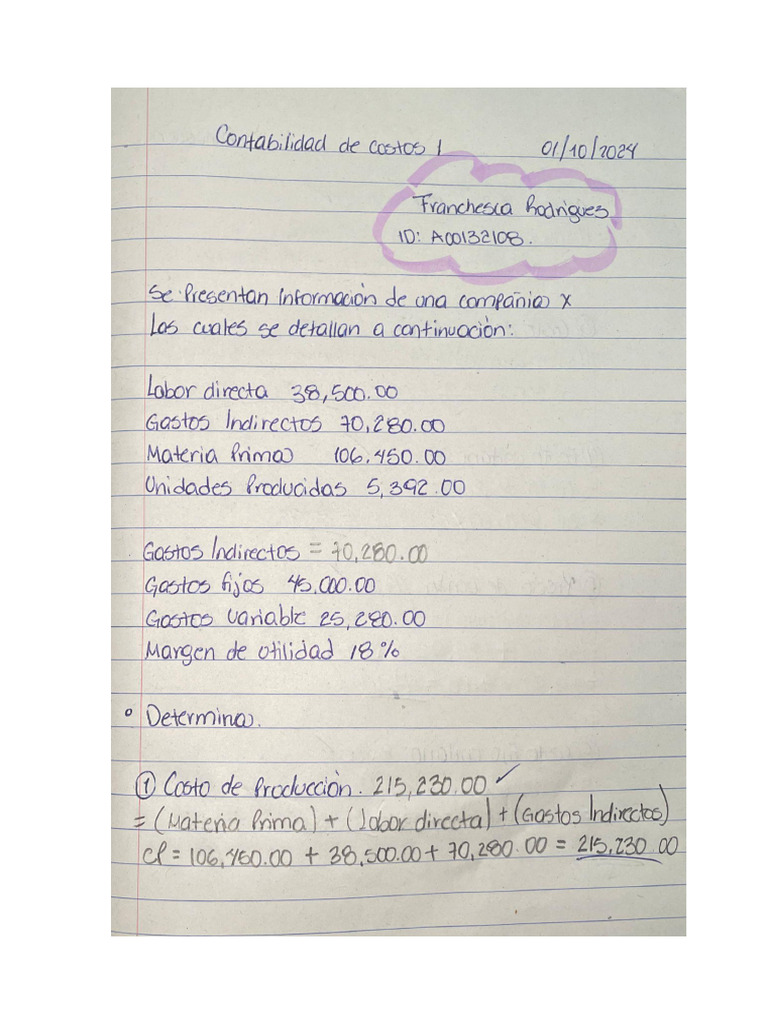 Contabilidad de costos 1 01/10/2024
Franchesca Rodrigues
ID: A00132108.
Se Presentan Información de una compañia x
Los cuales se detallan a continuación:
Labor directa 38,500.00
Gastos Indirectos 70,280.00
Materia Prima 106,450.00
Unidades Producidas 5,392.00
Gastos Indirectos = 70,280.00
Gastos fijos 45,000.00
Gastos variable 25,280.00
Margen de utilidad 18%
° Determina.
① Costo de Producción. 215,230.00 ✓
= (Materia Prima) + (labor directa) + (Gastos Indirectos)
CP = 106,450.00 + 38,500.00 + 70,280.00 = 215,230.00